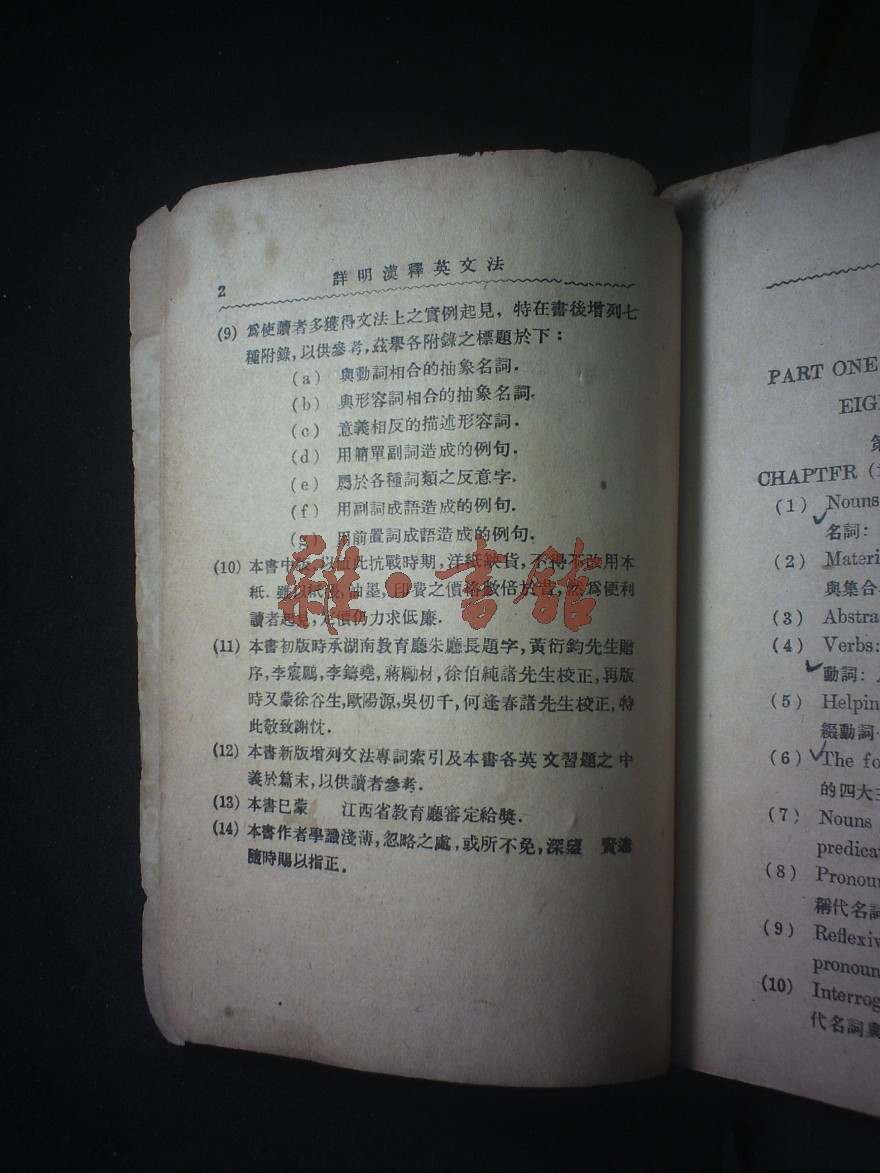 2 詳明漢釋英文法
(9) 爲使讀者多獲得文法上之實例起見，特在書後增列七
種附錄，以供參考，茲舉各附錄之標題於下：
(a) 與動詞相合的抽象名詞．
(b) 與形容詞相合的抽象名詞．
(c) 意義相反的描述形容詞．
(d) 用簡單副詞造成的例句．
(e) 屬於各種詞類之反意字．
(f) 用副詞成語造成的例句．
(g) 用前置詞成語造成的例句．
(10) 本書中 以値此抗戰時期，洋紙缺貨，不得不改用本
紙．雖以紙 油墨，印費之價格數倍於昔，然爲便利
讀者起見，定價仍力求低廉．
(11) 本書初版時承湖南教育廳朱廳長題字，黃衍鈞先生贈
序，李震鵬，李鑄堯，蔣勵材，徐伯純諸先生校正，再版
時又蒙徐谷生，歐陽源，吳仞千，何逢春諸先生校正，特
此敬致謝忱．
(12) 本書新版增列文法專詞索引及本書各英文習題之中
義於篇末，以供讀者參考．
(13) 本書已蒙 江西省教育廳審定給獎．
(14) 本書作者學識淺薄，忽略之處，或所不免，深望 賢達
隨時賜以指正．
雜·書館
PART ONE
EIG
第
CHAPTER (
(1) Nouns
名詞：
(2) Materi
與集合
(3) Abstra
(4) Verbs:
動詞：
(5) Helpin
綴動詞
(6) The fo
的四大主
(7) Nouns
predica
(8) Pronou
稱代名詞
(9) Reflexiv
pronoun
(10) Interrog
代名詞與